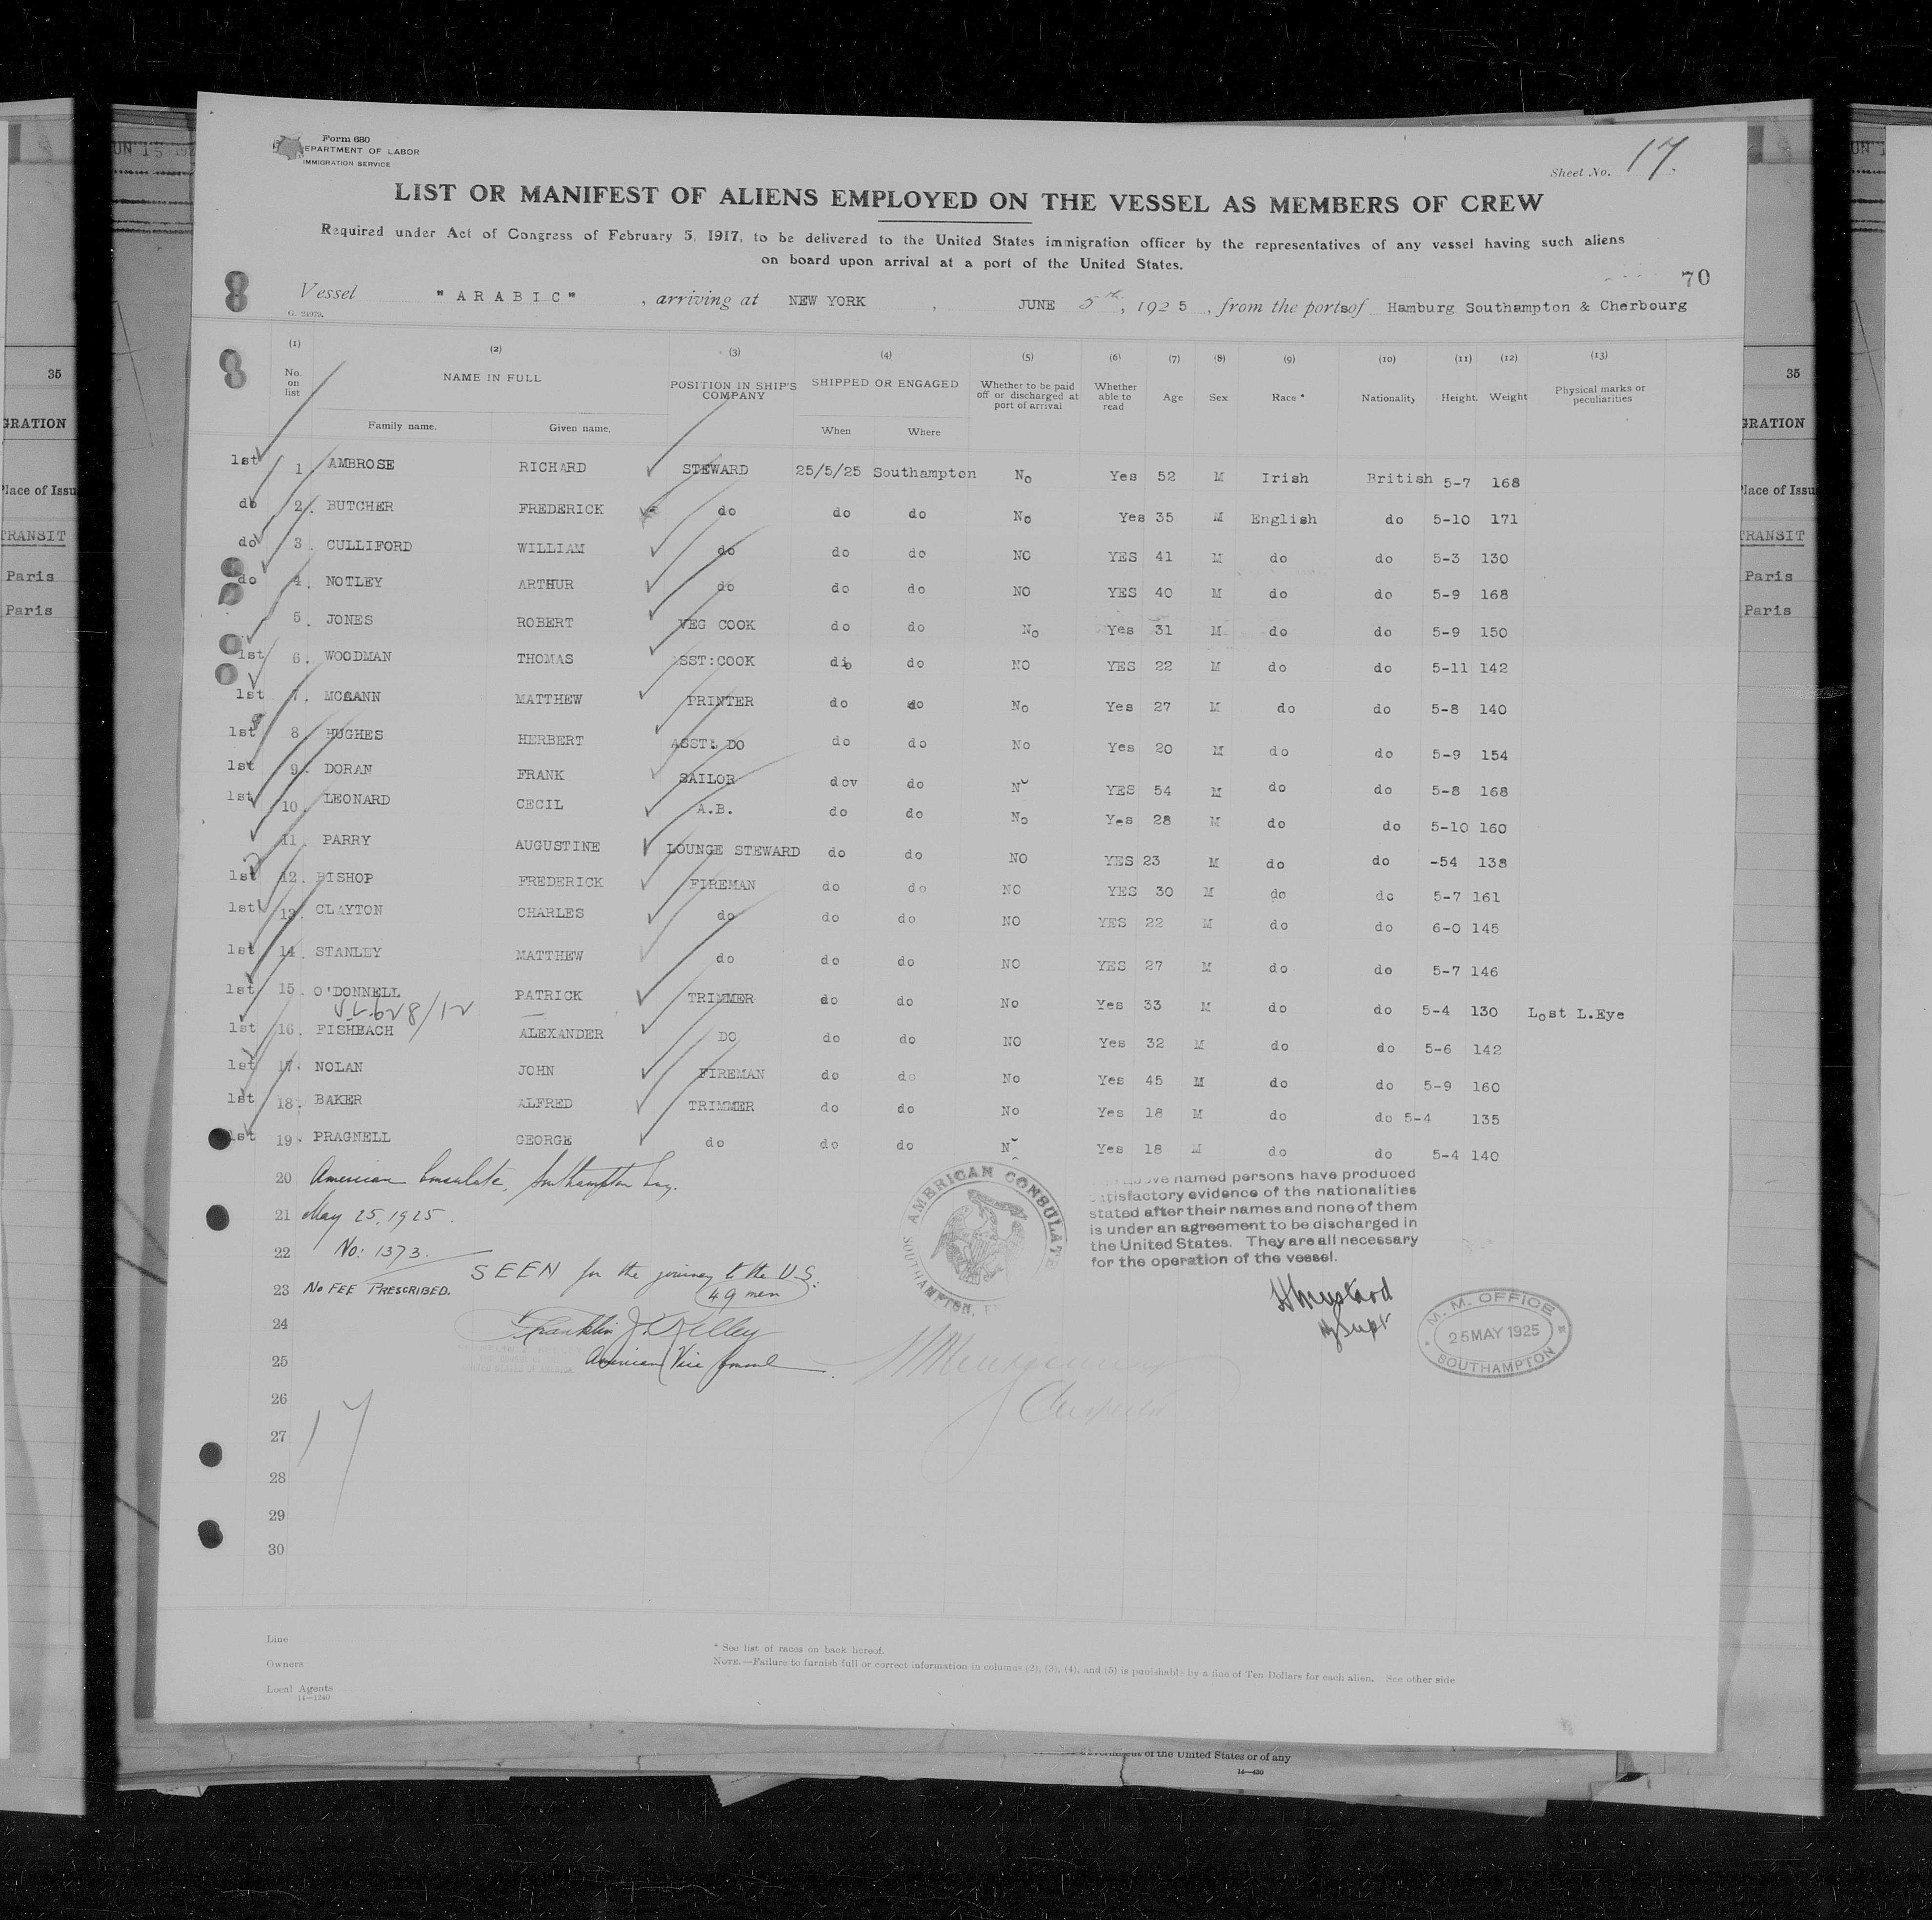 Form 680
DEPARTMENT OF LABOR
IMMIGRATION SERVICE
Sheet No. 17.
LIST OR MANIFEST OF ALIENS EMPLOYED ON THE VESSEL AS MEMBERS OF CREW
Required under Act of Congress of February 5, 1917, to be delivered to the United States immigration officer by the representatives of any vessel having such aliens
on board upon arrival at a port of the United States.
70
Vessel "ARABIC", arriving at NEW YORK, JUNE 5th, 1925, from the ports of Hamburg Southampton & Cherbourg
G. 24979.
(1) (2) (3) (4) (5) (6) (7) (8) (9) (10) (11) (12) (13)
No. on list NAME IN FULL POSITION IN SHIP'S COMPANY SHIPPED OR ENGAGED Whether to be paid off or discharged at port of arrival Whether able to read Age Sex Race * Nationality Height. Weight Physical marks or peculiarities
Family name. Given name. When Where
1st 1. AMBROSE RICHARD STEWARD 25/5/25 Southampton No Yes 52 M Irish British 5-7 168
do 2. BUTCHER FREDERICK do do do No Yes 35 M English do 5-10 171
do 3. CULLIFORD WILLIAM do do do NO YES 41 M do do 5-3 130
do 4. NOTLEY ARTHUR do do do NO YES 40 M do do 5-9 168
5. JONES ROBERT VEG COOK do do No Yes 31 M do do 5-9 150
1st 6. WOODMAN THOMAS ASST:COOK do do NO YES 22 M do do 5-11 142
1st 7. MCCANN MATTHEW PRINTER do do No Yes 27 M do do 5-8 140
1st 8. HUGHES HERBERT ASST: DO do do No Yes 20 M do do 5-9 154
1st 9. DORAN FRANK SAILOR dov do No YES 54 M do do 5-8 168
1st 10. LEONARD CECIL A.B. do do No Yes 28 M do do 5-10 160
11. PARRY AUGUSTINE LOUNGE STEWARD do do NO YES 23 M do do -54 138
1st 12. BISHOP FREDERICK FIREMAN do do NO YES 30 M do do 5-7 161
1st 13. CLAYTON CHARLES do do do NO YES 22 M do do 6-0 145
1st 14. STANLEY MATTHEW do do do NO YES 27 M do do 5-7 146
1st 15. O'DONNELL PATRICK TRIMMER do do No Yes 33 M do do 5-4 130 Lost L.Eye
1st 16. FISHBACH ALEXANDER DO do do NO Yes 32 M do do 5-6 142
1st 17. NOLAN JOHN FIREMAN do do No Yes 45 M do do 5-9 160
1st 18. BAKER ALFRED TRIMMER do do No Yes 18 M do do 5-4 135
1st 19. PRAGNELL GEORGE do do do No Yes 18 M do do 5-4 140
20 American Consulate, Southampton Eng.
21 May 25, 1925.
22 No: 1373.
SEEN for the journey to the U.S.
23 No FEE PRESCRIBED.
49 men
24 Franklin J. Kelley
25 American Vice Consul
26
27
28
29
30
17
AMERICAN CONSULATE
SOUTHAMPTON,
above named persons have produced
satisfactory evidence of the nationalities
stated after their names and none of them
is under an agreement to be discharged in
the United States. They are all necessary
for the operation of the vessel.
M. M. OFFICE
25 MAY 1925
SOUTHAMPTON
Line
Owners
Local Agents
14—1240
* See list of races on back hereof.
NOTE.—Failure to furnish full or correct information in columns (2), (3), (4), and (5) is punishable by a fine of Ten Dollars for each alien. See other side
of the United States or of any
35
GRATION
Place of Issu
TRANSIT
Paris
Paris
35
GRATION
Place of Issu
TRANSIT
Paris
Paris